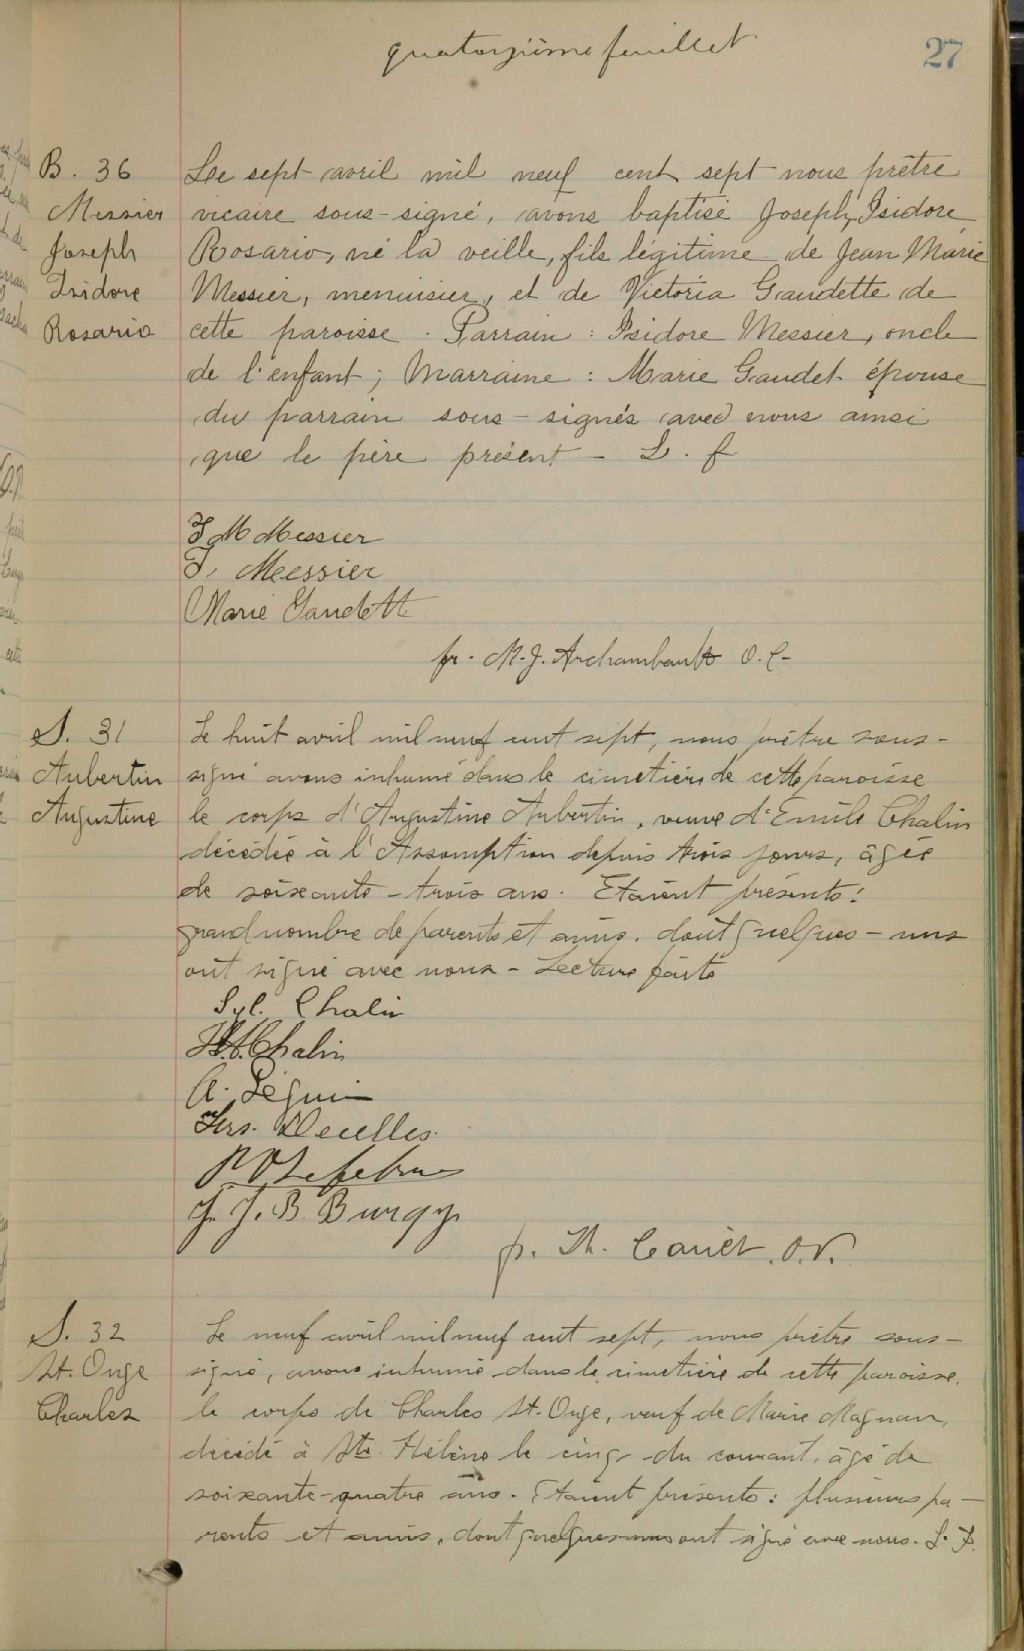 quatorzième feuillet
27
B. 36
Messier
Joseph
Isidore
Rosario
Le sept avril mil neuf cent sept nous prêtre
vicaire sous-signé, avons baptisé Joseph, Isidore,
Rosario, né la veille, fils légitime de Jean Marie
Messier, menuisier, et de Victoria Gaudette de
cette paroisse. Parrain : Isidore Messier, oncle
de l'enfant ; Marraine : Marie Gaudet épouse
du parrain sous-signés avec nous ainsi
que le père présent - L. f
J M Messier
I. Messier
Marie Gaudette
fr. M. J. Archambault O. P.
S. 31
Aubertin
Augustine
Le huit avril mil neuf cent sept, nous prêtre sous-
signé avons inhumé dans le cimetière de cette paroisse
le corps d'Augustine Aubertin, veuve d'Emile Chalin
décédée à l'Assomption depuis trois jours, âgée
de soixante-trois ans. Etaient présents :
grand nombre de parents et amis. dont quelques-uns
ont signé avec nous - Lecture faite
Syl. Chalin
Chalin
A. Séguin
Decelles
Lefebvre
J. J. B. Burgy
fr. Th. Couët. O.P.
S. 32
St. Onge
Charles
Le neuf avril mil neuf cent sept, nous prêtre sous-
signé, avons inhumé dans le cimetière de cette paroisse,
le corps de Charles St. Onge, veuf de Marie Magnan,
décédé à Ste. Hélène le cinq du courant, âgé de
soixante-quatre ans. Etaient présents : plusieurs pa-
rents et amis, dont quelques-uns ont signé avec nous. L. F.